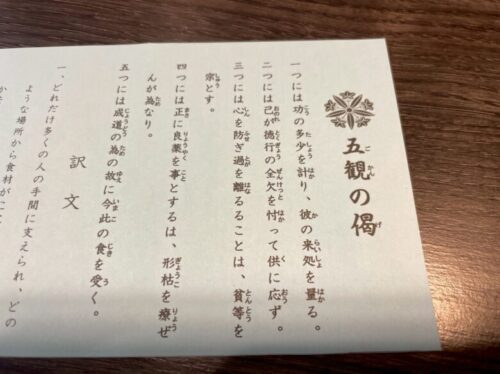 五観の偈
一つには功の多少を計り、彼の来処を量る。
二つには己が徳行の全欠を忖って供に応ず。
三つには心を防ぎ過を離るることは、貪等を
宗とす。
四つには正に良薬を事とするは、形枯を療ぜ
んが為なり。
五つには成道の為の故に今此の食を受く。
訳文
一、どれだけ多くの人の手間に支えられ、どの
ような場所から食材が